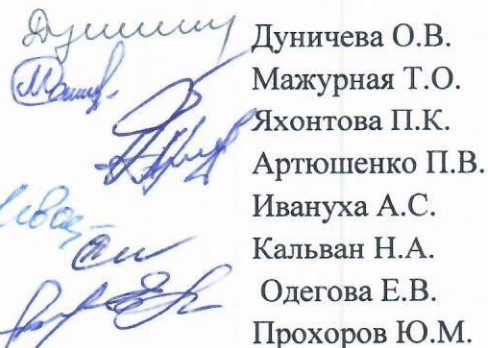 Дуничева О.В.
Мажурная Т.О.
Яхонтова П.К.
Артюшенко П.В.
Ивануха А.С.
Кальван Н.А.
Одегова Е.В.
Прохоров Ю.М.